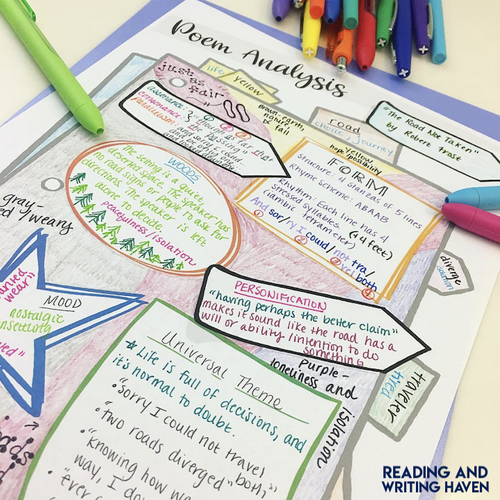 Poem Analysis
just as
fair"
life
yellow
brown, earth,
nature,
fall
road
choice / journey
"The Road Not Taken"
by Robert Frost
yellow
hope/possibility
FORM
Structure: 4 stanzas of 5 lines
Rhyme scheme: ABAAB
Rhythm: Each line has 4
stressed syllables. (4 feet)
(iambic tetrameter)
And sor/ry I could/not tra/
vel both
WOODS
The setting is quiet,
deserted. The speaker has
no road signs or people to ask for
directions. The speaker is left
alone to decide.
peacefulness/isolation
gray-
weary
MOOD
nostalgic
wear"
PERSONIFICATION
"having perhaps the better claim"
makes it sound like the road has a
will or ability/intention to do
something
purple-
loneliness and
isolation
diverge
traveler
Universal Theme
Life is full of decisions, and
it's normal to doubt.
"sorry I could not travel
"two roads diverged" both,"
"knowing how wa
way, I do
"ever
READING AND
WRITING HAVEN